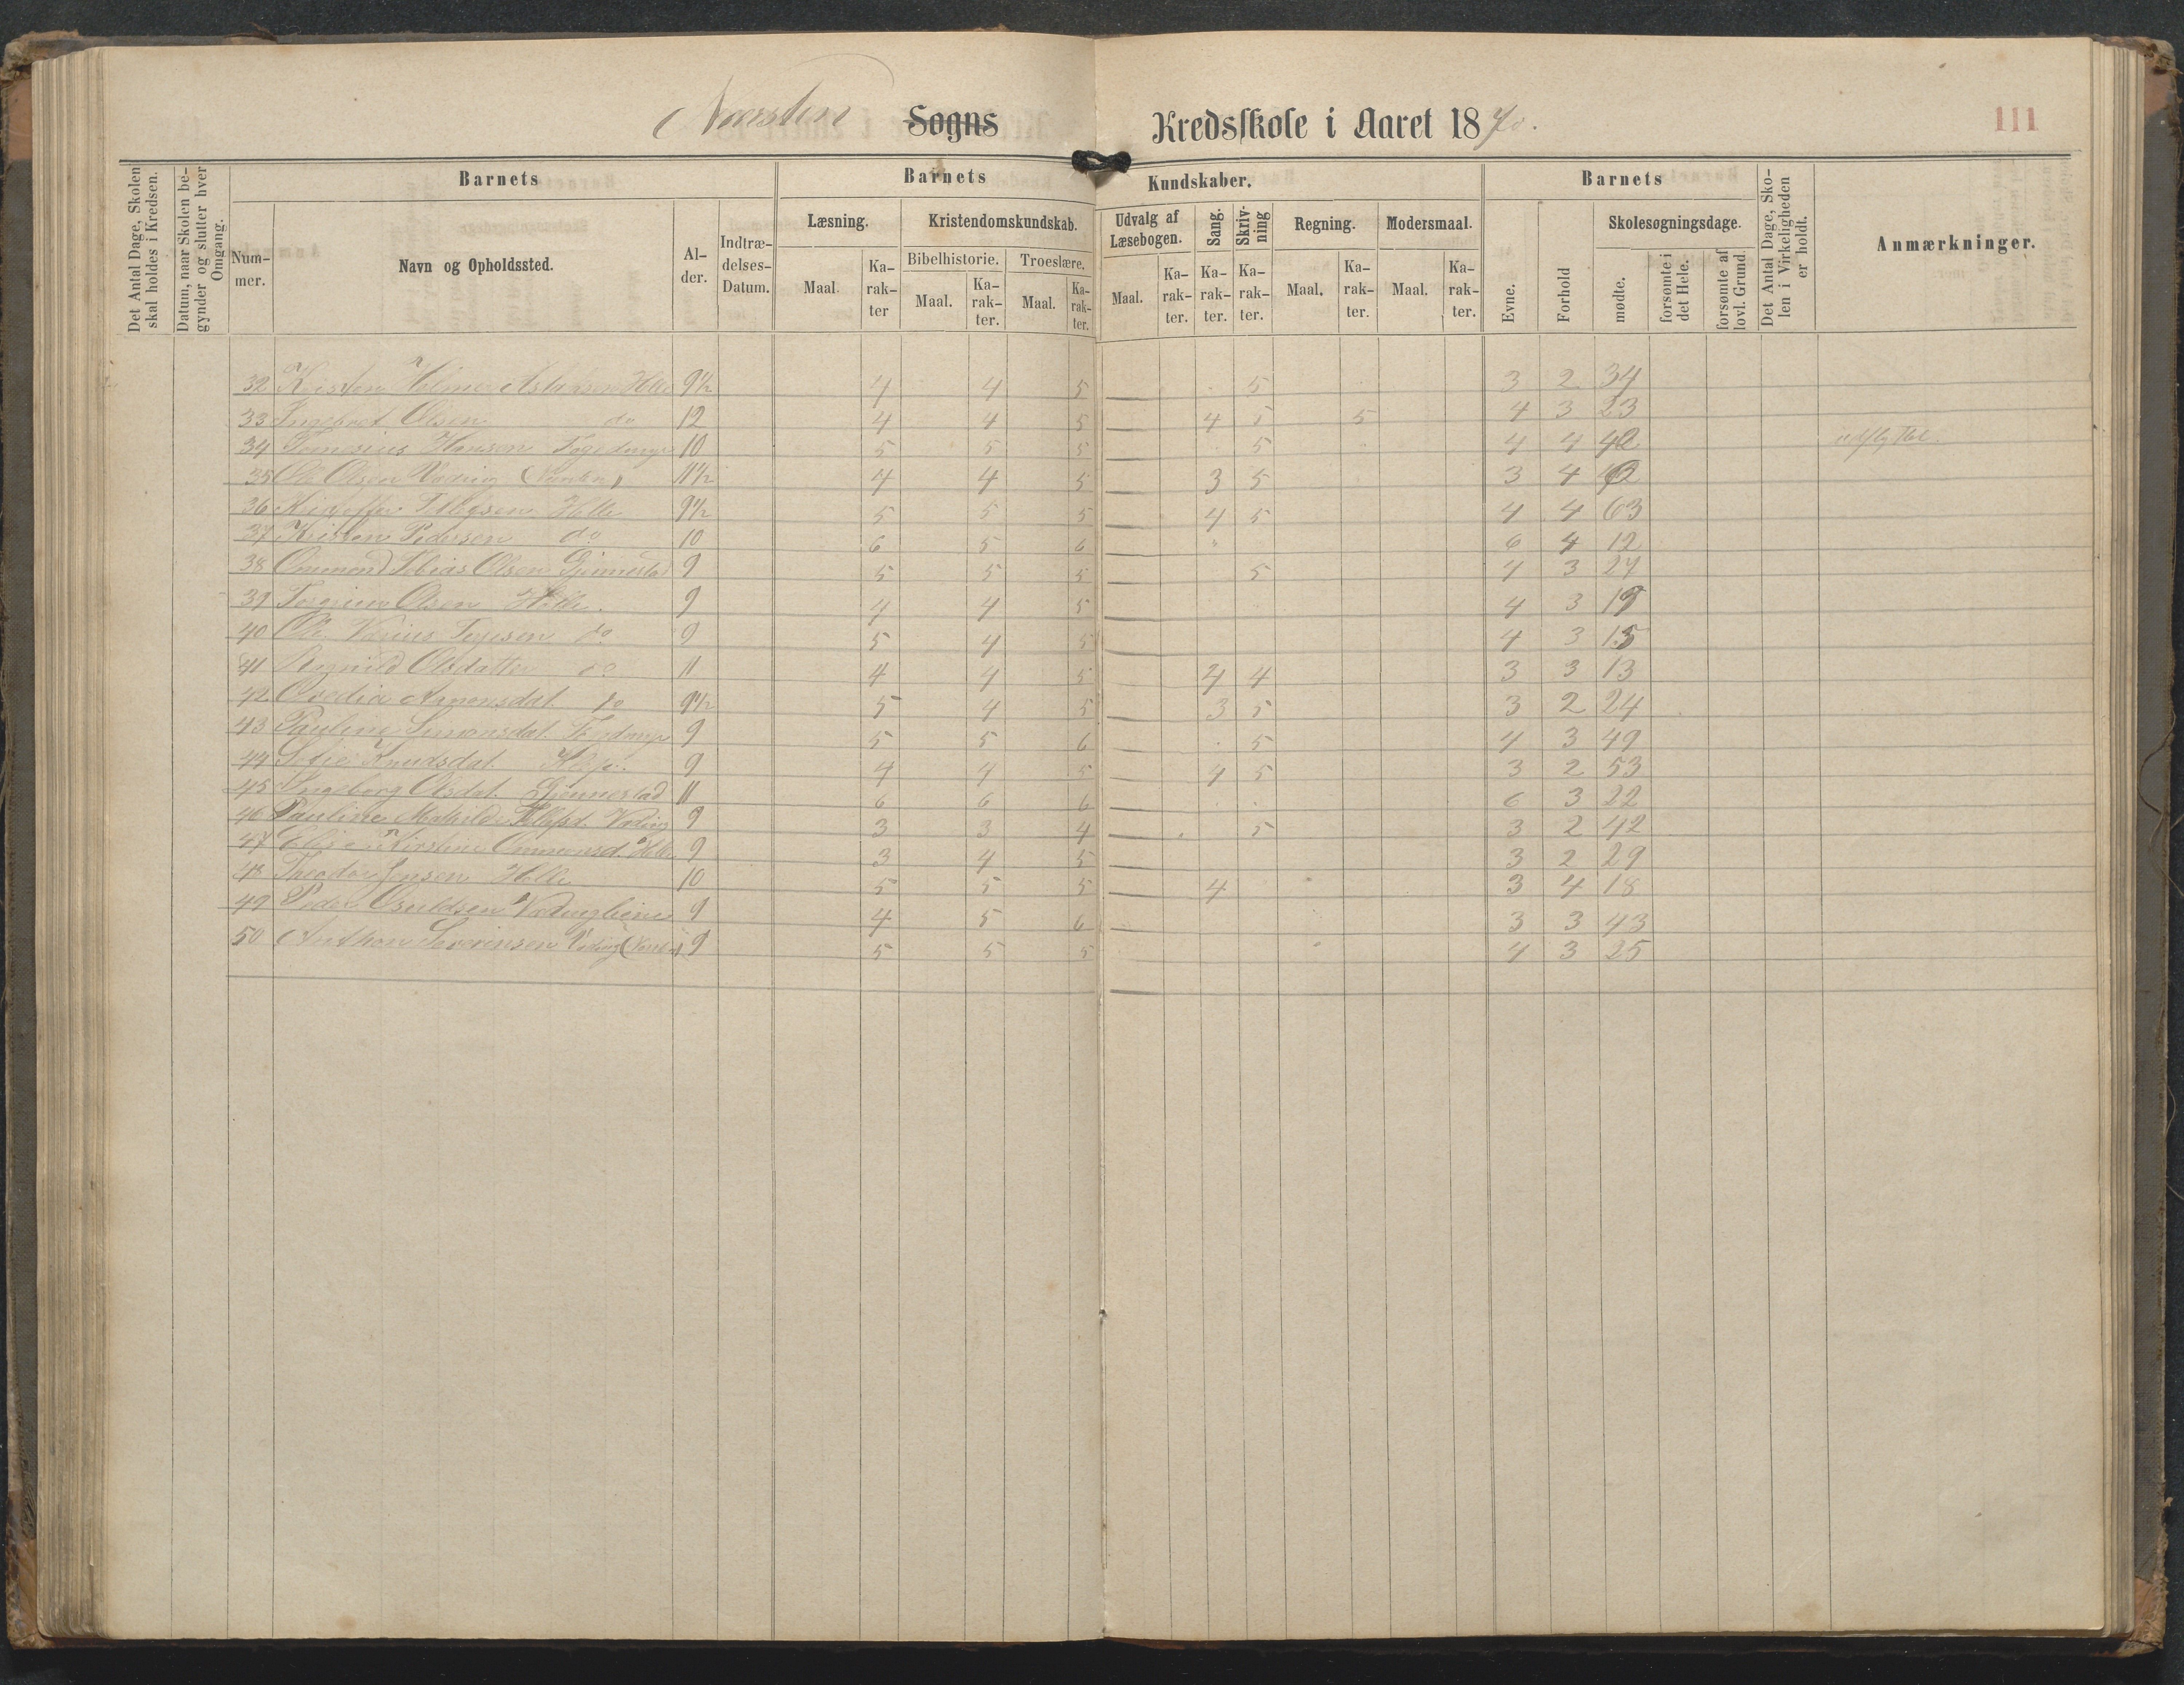 Næsten Sogns Kredsskole i Aaret 1870.
111
Det Antal Dage, Skolen skal holdes i Kredsen.
Datum, naar Skolen begynder og slutter hver Omgang.
Barnets
Nummer.
Navn og Opholdssted.
Alder.
Indtrædelses-Datum.
Barnets Kundskaber.
Læsning.
Maal.
Karakter
Kristendomskundskab.
Bibelhistorie.
Maal.
Karakter.
Troeslære.
Maal.
Karakter.
Udvalg af Læsebogen.
Maal.
Karakter.
Sang.
Karakter.
Skrivning
Karakter.
Regning.
Maal.
Karakter.
Modersmaal.
Maal.
Karakter.
Barnets
Evne.
Forhold
Skolesøgningsdage.
mødte.
forsømte i det Hele.
forsømte af lovl. Grund.
Det Antal Dage, Skolen i Virkeligheden er holdt.
Anmærkninger.
32 Kristen Helmer Aslaksen Helle 9½ 4 4 5 5 3 2 34
33 Ingebret Olsen do 12 4 4 5 4 5 5 4 3 23
34 Hansen 10 5 5 5 5 4 4 42 udflyttet.
35 Ole Olsen (Næsten) 11½ 4 4 5 3 5 3 4
36 Kristoffer Helle 9½ 5 5 5 4 5 4 4 63
37 Kristen Pedersen do 10 6 5 6 " 6 4 12
38 Ommund Tobias Olsen Gjennestad 9 5 5 5 5 4 3 27
39 Olsen Helle. 9 4 4 5 4 3 19
40 Ole do 9 5 4 5 4 3 15
41 Olsdatter do 11 4 4 5 4 4 3 3 13
42 do 9½ 5 4 5 3 5 3 2 24
43 Pauline Simonsdat. 9 5 5 6 5 4 3 49
44 Knudsdat. 9 4 4 5 4 5 3 2 53
45 Ingeborg Olsdat. Gjennestad 11 6 6 6 6 3 22
46 Pauline Mathilde 9 3 3 4 5 3 2 42
47 Elise Kirstine Ommundsd. Helle 9 3 4 5 3 2 29
48 Theodor Jensen Helle 10 5 5 5 4 3 4 18
49 Peder Osuldsen 9 4 5 6 3 3 43
50 Anthon Severinsen 9 5 5 5 4 3 25